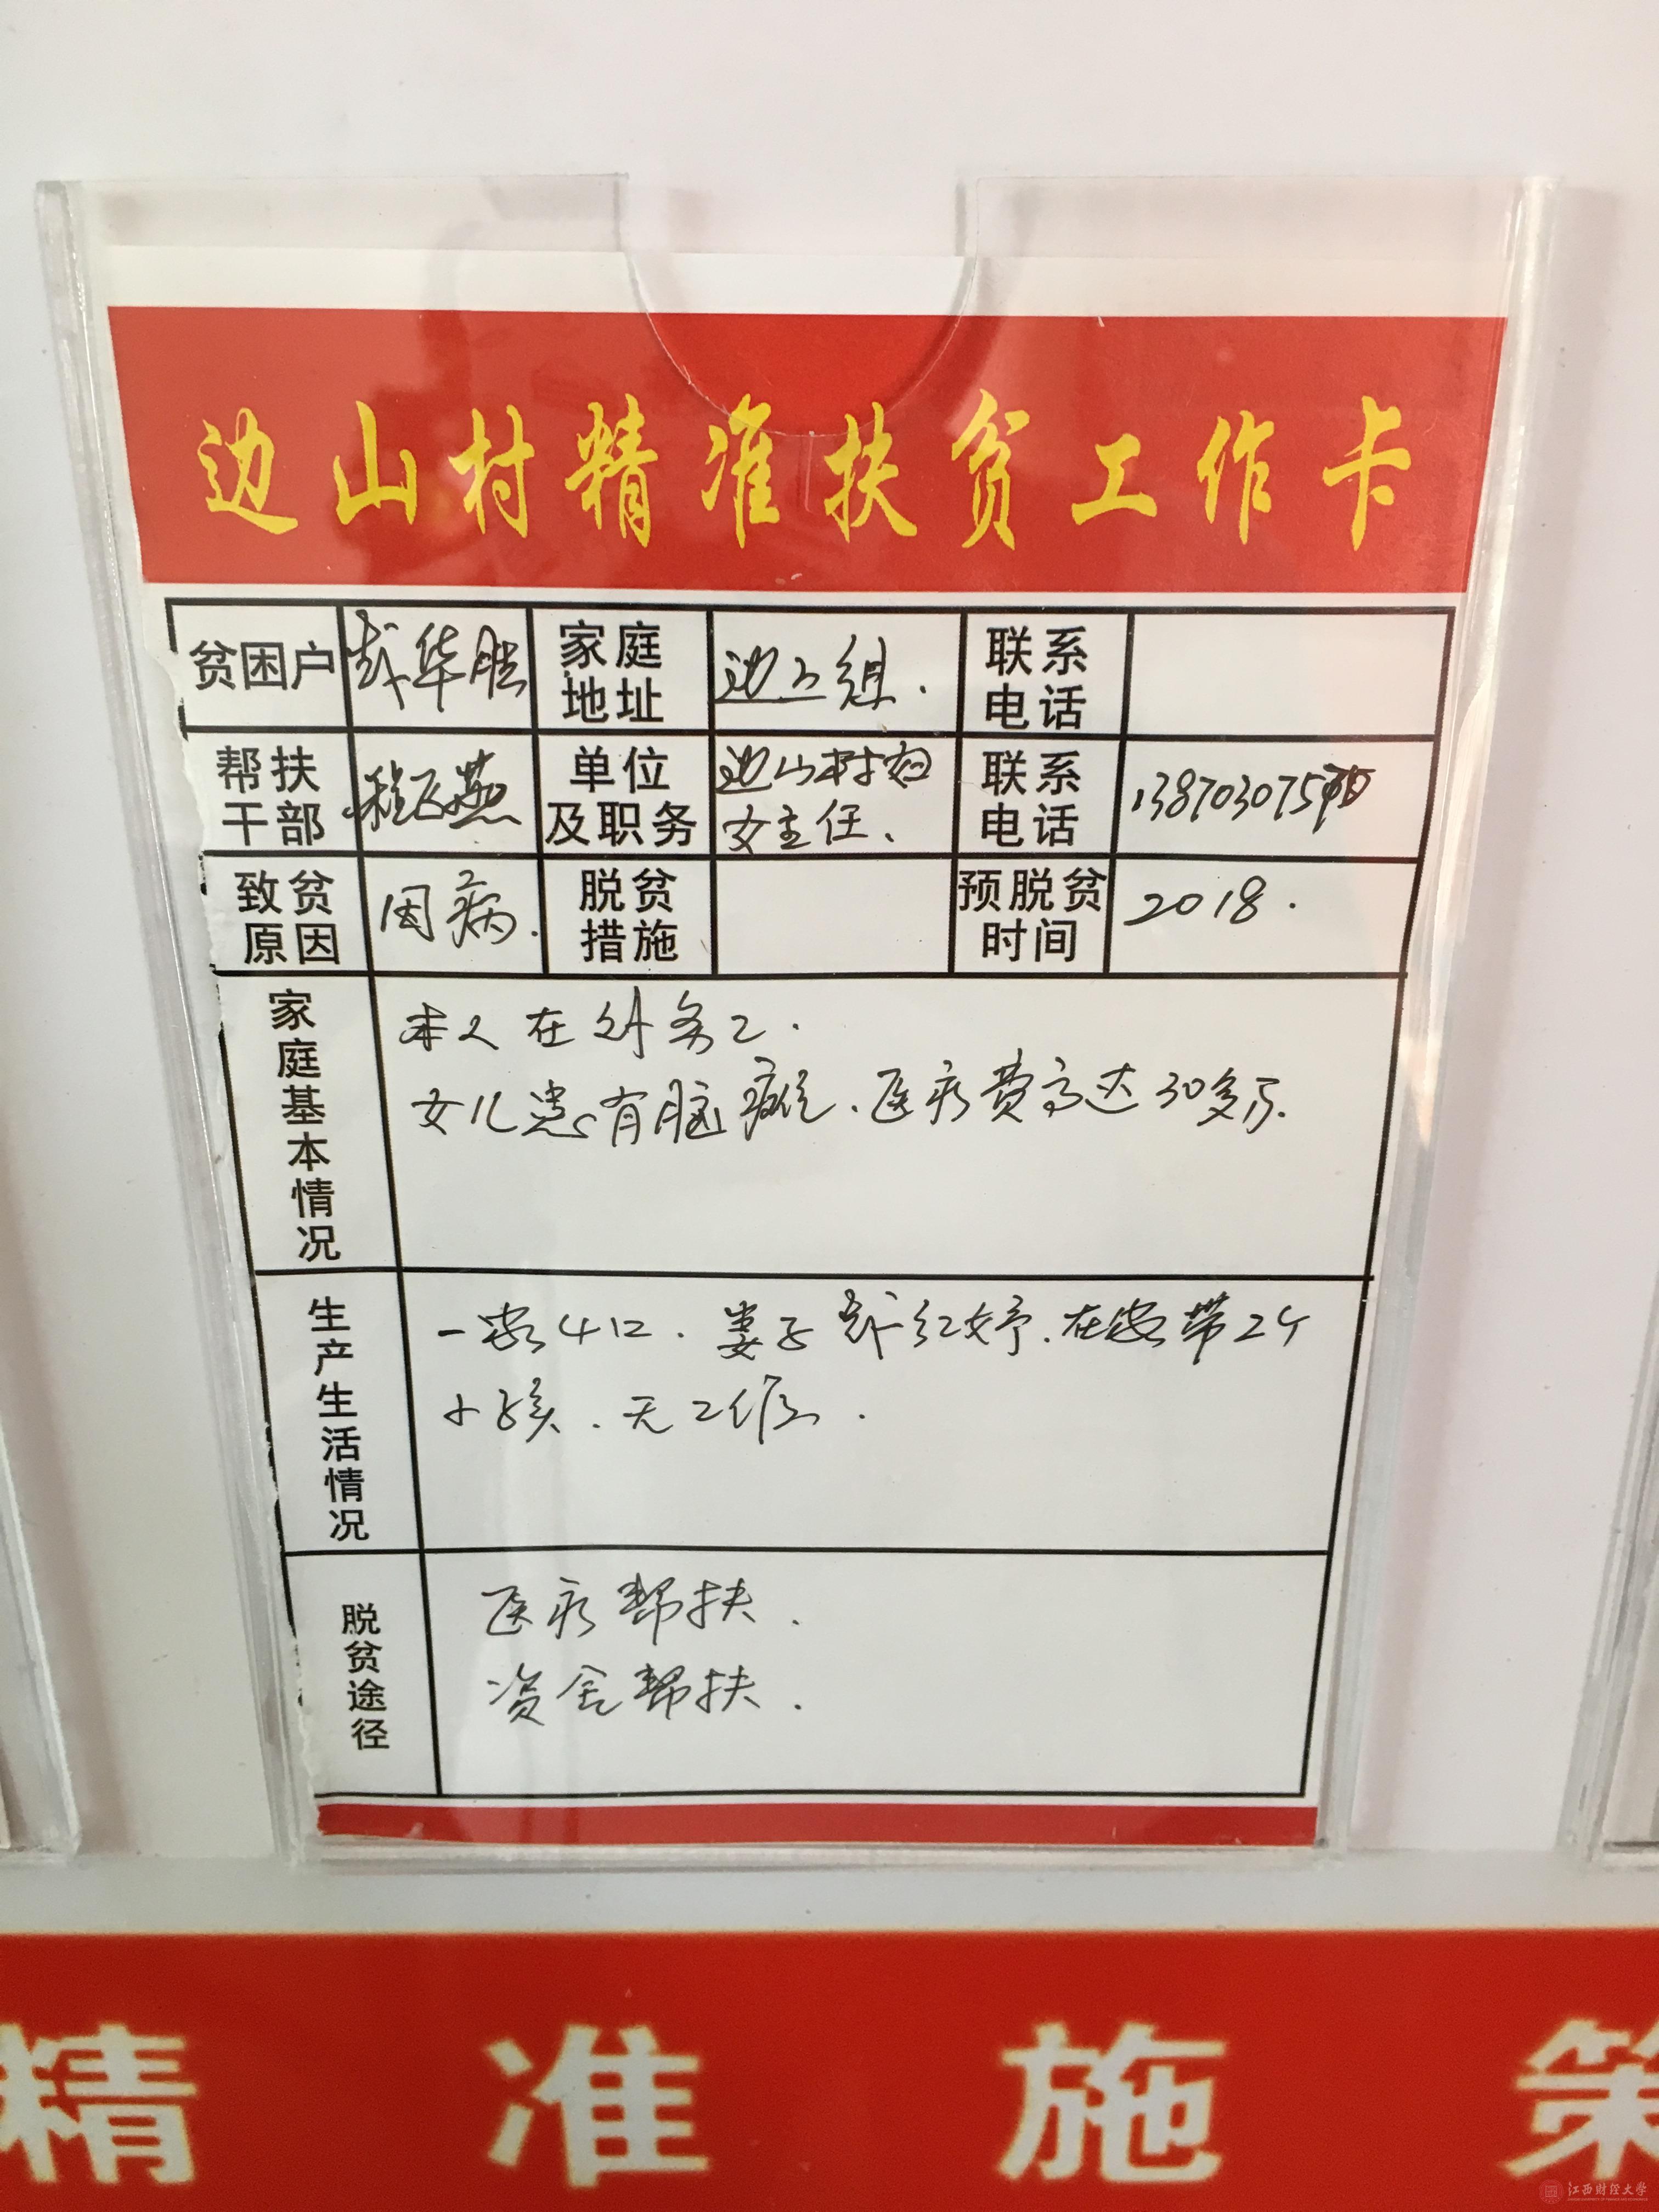 边山村精准扶贫工作卡
贫困户 华胜 家庭地址 边上组. 联系电话
帮扶干部 程飞燕 单位及职务 边山村妇女主任、 联系电话 138703075
致贫原因 因病. 脱贫措施 预脱贫时间 2018.
家庭基本情况
本人在外务工.
女儿患有脑瘫、医疗费高达30多万.
生产生活情况
一家4口. 妻子 红婷.在家带2个
小孩、无工作.
脱贫途径
医疗帮扶.
资金帮扶.
精准施策
江西财经大学